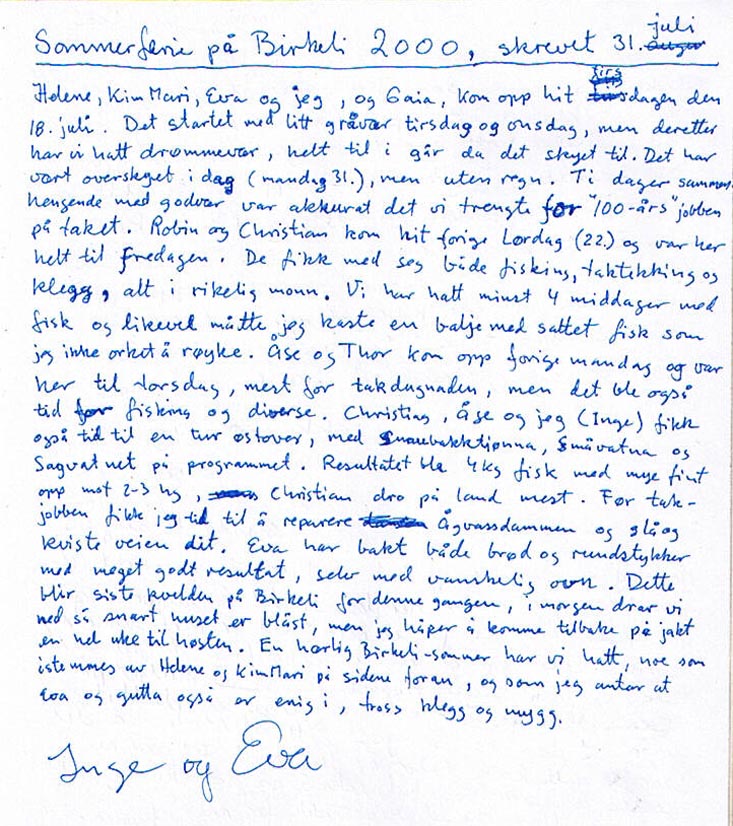 Sommerferie på Birkeli 2000, skrevet 31. juli
Helene, Kim Mari, Eva og jeg, og Gaia, kom opp hit tirsdagen den
18. juli. Det startet med litt gråvær tirsdag og onsdag, men deretter
har vi hatt drømmevær, helt til i går da det skyet til. Det har
vært overskyet i dag (mandag 31.), men uten regn. Ti dager sammen-
hengende med godvær var akkurat det vi trengte for "100-års"jobben
på taket. Robin og Christian kom hit forige Lørdag (22.) og var her
helt til fredagen. De fikk med seg både fisking, taktekking og
klegg, alt i rikelig monn. Vi har hatt minst 4 middager med
fisk og likevel måtte jeg kaste en balje med saltet fisk som
jeg ikke orket å røyke. Åse og Thor kom opp forige mandag og var
her til torsdag, mest for takdugnaden, men det ble også
tid for fisking og diverse. Christian, Åse og jeg (Inge) fikk
også tid til en tur østover, med Snaubakktjønna, Småvatna og
Sagvatnet på programmet. Resultatet ble 4kg fisk med mye fint
opp mot 2-3 hg, Christian dro på land mest. Før tak-
jobben fikk jeg tid til å reparere Ågvassdammen og slå og
kviste veien dit. Eva har bakt både brød og rundstykker
med meget godt resultat, selv med vanskelig ovn. Dette
blir siste kvelden på Birkeli for denne gangen, i morgen drar vi
ned så snart huset er blåst, men jeg håper å komme tilbake på jakt
en hel uke til høsten. En herlig Birkeli-sommer har vi hatt, noe som
istemmes av Helene og Kim Mari på sidene foran, og som jeg antar at
Eva og gutta også er enig i, tross klegg og mygg.
Inge og Eva